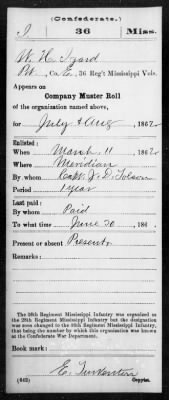 (Confederate.)
I 36 Miss.
W. H. Izard
Pvt, Co. E, 36 Reg't Mississippi Vols.
Appears on
Company Muster Roll
of the organization named above,
for July & Aug, 1862.
Enlisted:
When March 11, 1862.
Where Meridian
By whom Capt. J. D. Tolson
Period 1 year
Last paid:
By whom Paid
To what time June 30, 186 .
Present or absent Present
Remarks:
The 36th Regiment Mississippi Infantry was organized as
the 28th Regiment Mississippi Infantry but the designation
was soon changed to the 36th Regiment Mississippi Infantry, that
being the number by which this organization was known at
the Confederate War Department.
Book mark:
E. Turkenton
(642) Copyist.